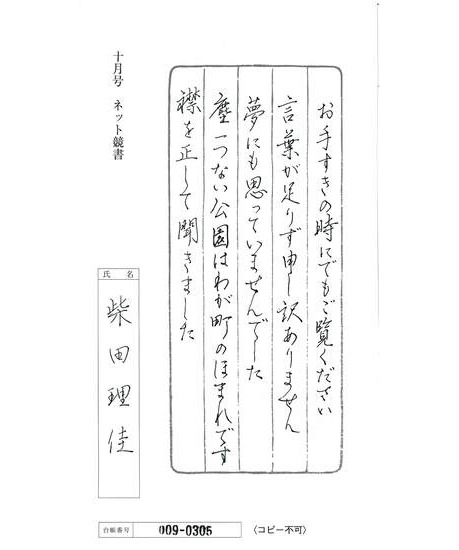 お手すきの時にでもご覧ください
言葉が足りず申し訳ありません
夢にも思っていませんでした
塵一つない公園はわが町のほまれです
襟を正して聞きました
十月号 ネット競書
氏 名
柴田理佳
台帳番号 009-0305 〈コピー不可〉